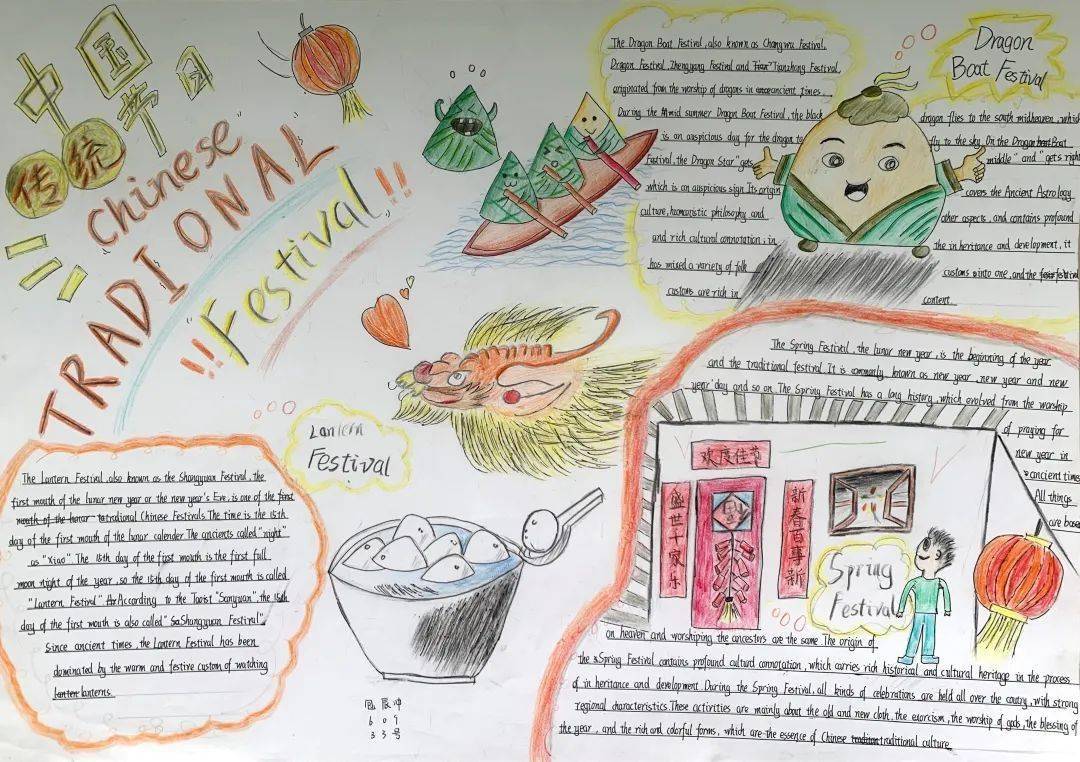 中国
传统节日
"Chinese"
TRADIONAL
!! Festival !!
Dragon
Boat Festival
The Dragon Boat Festival, also known as Chongwu Festival,
Dragon Festival, Zhengyang Festival and Tianzhong Festival,
originated from the worship of dragons in ancient times
During the mid summer Dragon Boat Festival, the black dragon flies to the south midheaven, which
is an auspicious day for the dragon to fly to the sky. On the Dragon Boat
Festival, the Dragon Star "gets middle" and "gets right
which is an auspicious sign. Its origin covers the Ancient Astrology
culture, humanistic philosophy and other aspects, and contains profound
and rich cultural connotation, in the in heritance and development, it
has mixed a variety of folk customs into one, and the festival
customs are rich in content
Lantern
Festival
The Lantern Festival, also known as the Shangyuan Festival, the
first mouth of the lunar new year or the new year's Eve, is one of the first
mouth of the lunar tratradional Chinese Festivals. The time is the 15th
day of the first mouth of the lunar calender The ancients called "night"
as "Xiao" The 15th day of the first mouth is the first full
moon night of the year, so the 15th day of the first mouth is called
"Lantern Festival" According to the Taoist "Sanyuan", the 15th
day of the first mouth is also called "SaShangyuan Festival".
Since ancient times, the Lantern Festival has been
dominated by the warm and festive custom of watching
lanter lanterns
The Spring Festival, the lunar new year, is the beginning of the year
and the traditional festival. It is commonly known as new year, new year and new
year' day and so on. The Spring Festival has a long history, which evolved from the worship
of praying for
new year in
ancient times
All things
are based
欢度佳节
盛世千家乐
新春百事新
Spring
Festival
on heaven and worshiping the ancestors are the same The origin of
the Spring Festival contains profound culturd connotation, which carries rich historical and cultural heritage in the process
of in heritance and development. During the Spring Festival, all kinds of celebrations are held all over the coutry, with strong
regional characteristics. These activities are mainly about the old and new cloth, the exorcism, the worship of gods, the blessing of
the year, and the rich and colorful forms, which are the essence of Chinese tradition traditional culture
609
33号